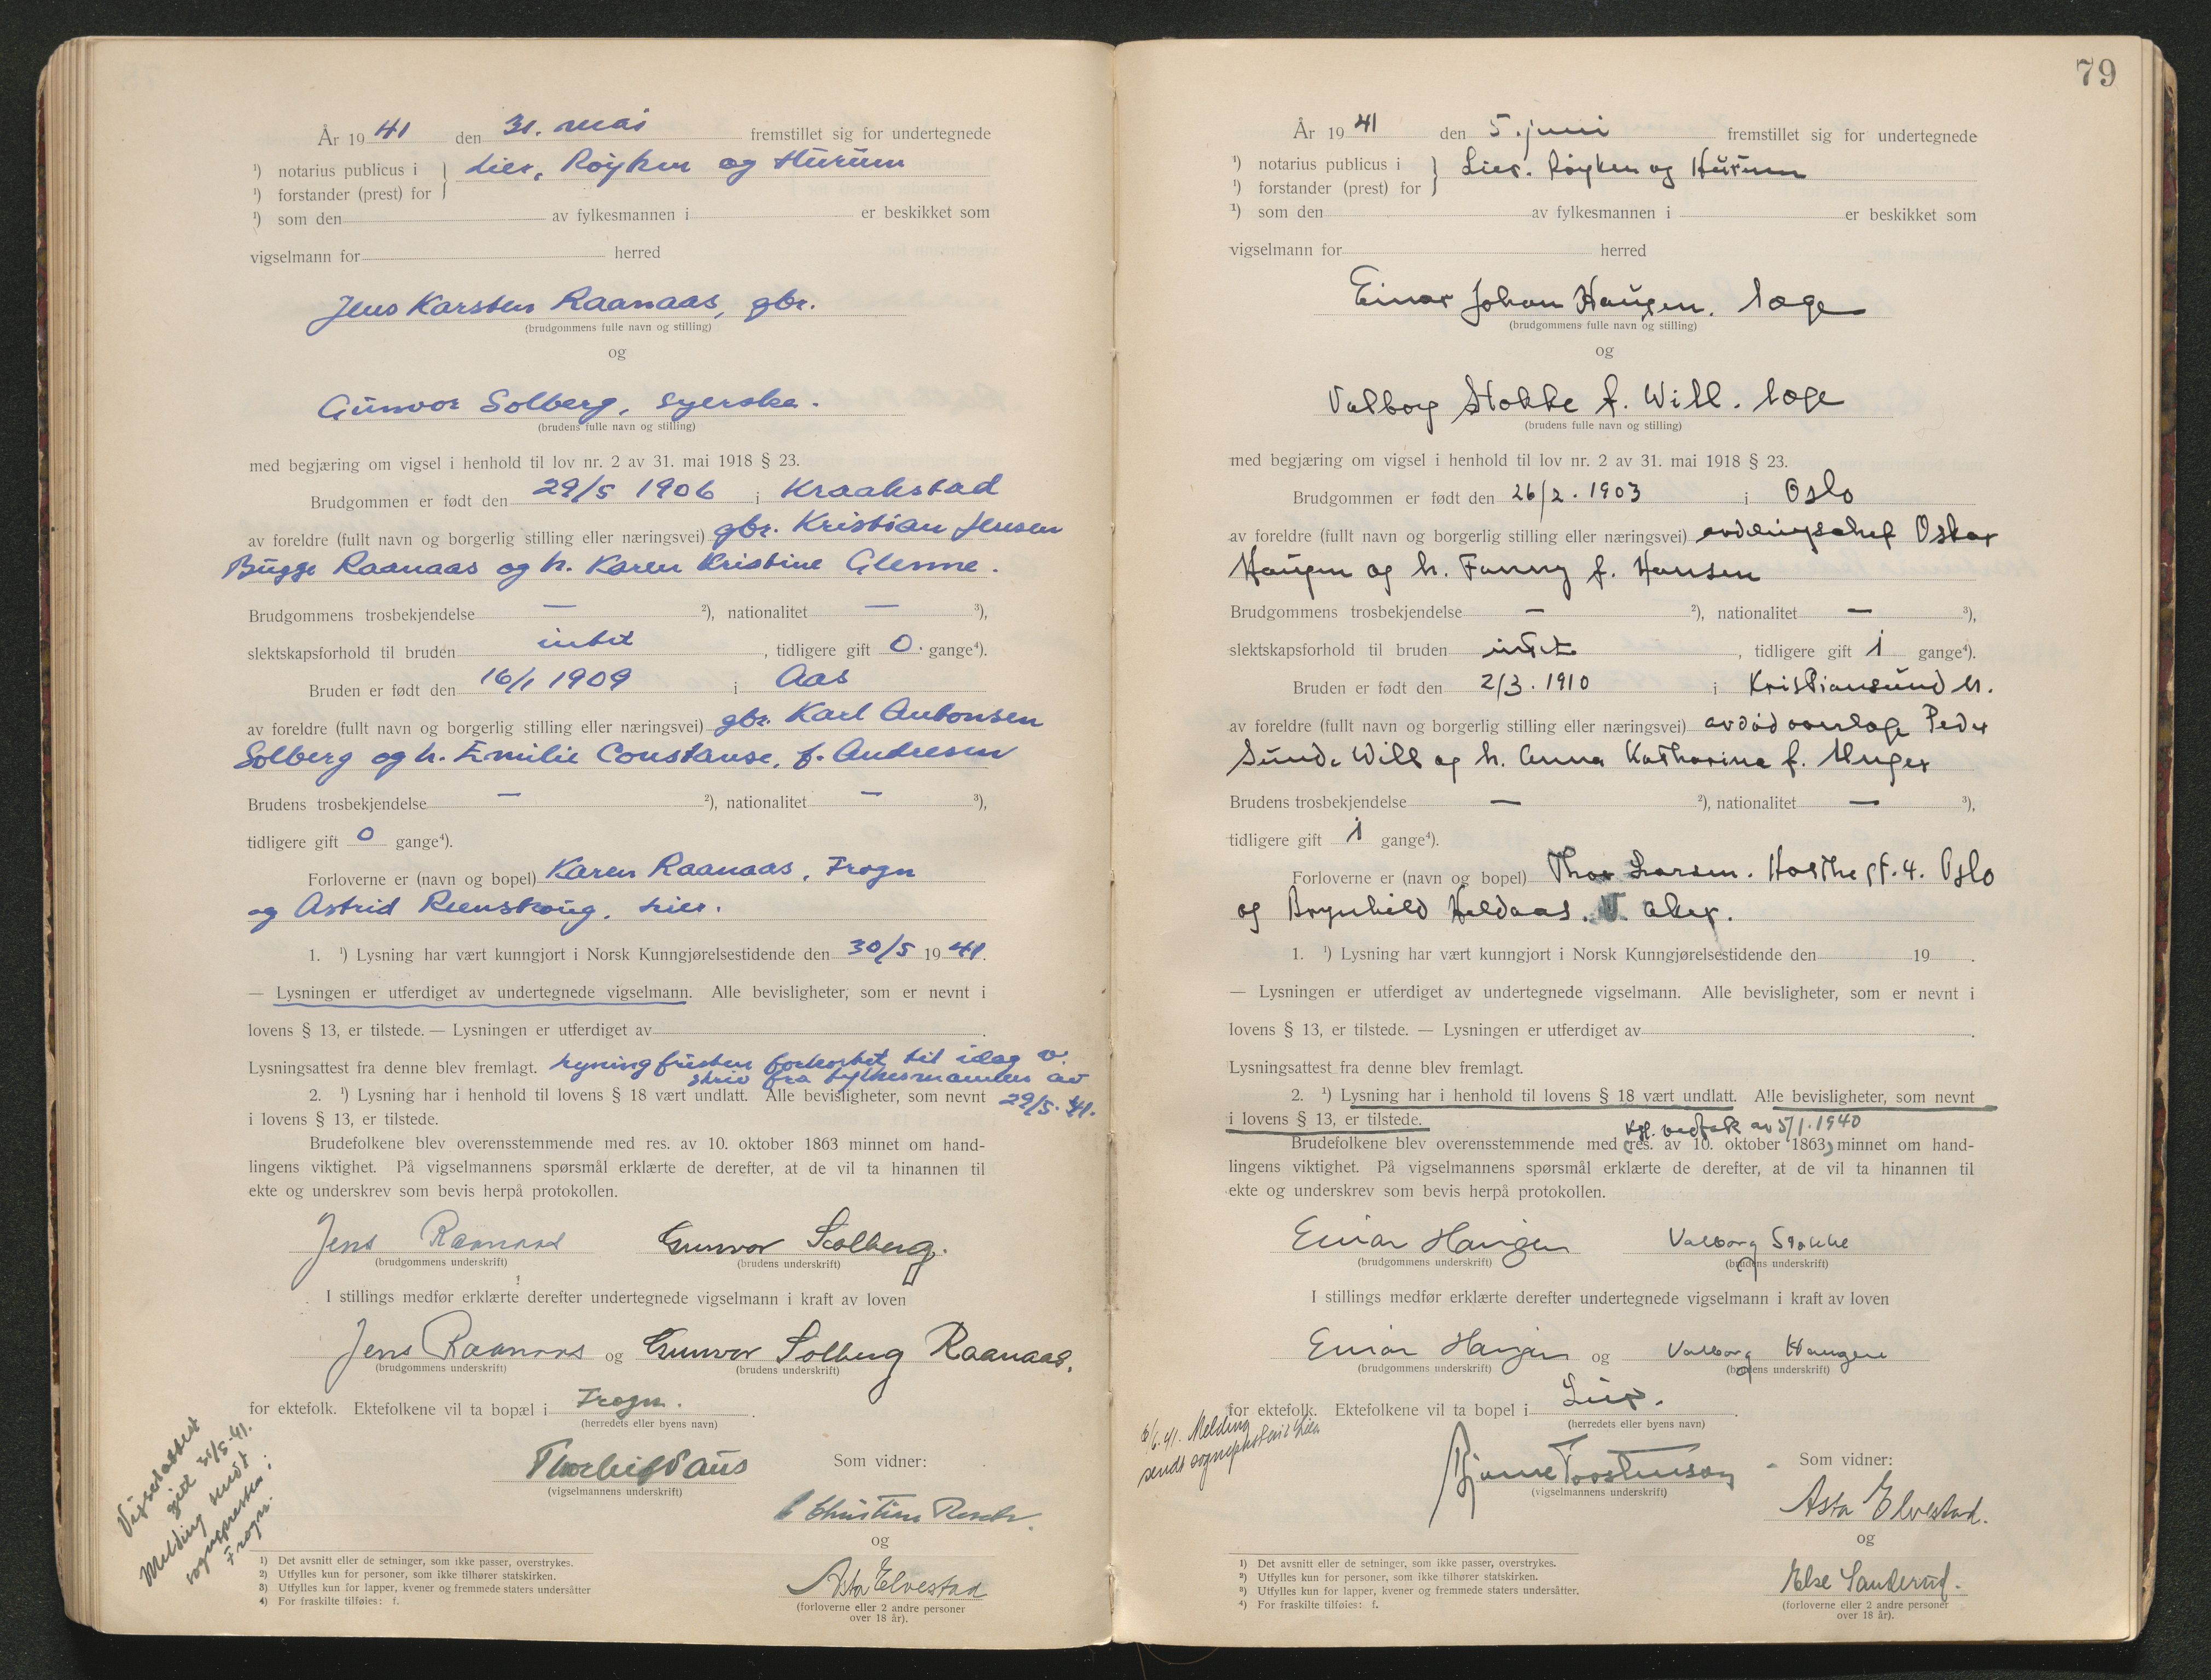 År 19 41 den 31. mai fremstillet sig for undertegnede
¹) notarius publicus i } Lier, Røyken og Hurum
¹) forstander (prest) for
¹) som den av fylkesmannen i er beskikket som
vigselmann for herred
Jens Karsten Raanaas, gbr.
(brudgommens fulle navn og stilling)
og
Gunvor Solberg, syerske.
(brudens fulle navn og stilling)
med begjæring om vigsel i henhold til lov nr. 2 av 31. mai 1918 § 23.
Brudgommen er født den 29/5 1906 i Kraakstad
av foreldre (fullt navn og borgerlig stilling eller næringsvei) gbr. Kristian Jensen
Bugge Raanaas og h. Karen Kristine Glenne.
Brudgommens trosbekjendelse — ²), nationalitet — ³),
slektskapsforhold til bruden intet, tidligere gift 0 gange⁴).
Bruden er født den 16/1 1909 i Aas
av foreldre (fullt navn og borgerlig stilling eller næringsvei) gbr. Karl Antonsen
Solberg og h. Emilie Constanse, f. Andresen
Brudens trosbekjendelse — ²), nationalitet — ³),
tidligere gift 0 gange⁴).
Forloverne er (navn og bopel) Karen Raanaas, Frogn
og Astrid Reenskoug, Lier.
1. ¹) Lysning har vært kunngjort i Norsk Kunngjørelsestidende den 30/5 1941.
— Lysningen er utferdiget av undertegnede vigselmann. Alle bevisligheter, som er nevnt i
lovens § 13, er tilstede. — Lysningen er utferdiget av
Lysningsattest fra denne blev fremlagt. Lysningsfristen forkortet til idag v.
skriv fra fylkesmannen av
29/5.41.
2. ¹) Lysning har i henhold til lovens § 18 vært undlatt. Alle bevisligheter, som nevnt
i lovens § 13, er tilstede.
Brudefolkene blev overensstemmende med res. av 10. oktober 1863 minnet om hand-
lingens viktighet. På vigselmannens spørsmål erklærte de derefter, at de vil ta hinannen til
ekte og underskrev som bevis herpå protokollen.
Jens Raanaas Gunvor Solberg.
(brudgommens underskrift) (brudens underskrift)
I stillings medfør erklærte derefter undertegnede vigselmann i kraft av loven
Jens Raanaas og Gunvor Solberg Raanaas.
(brudgommens underskrift) (brudens underskrift)
for ektefolk. Ektefolkene vil ta bopæl i Frogn.
(herredets eller byens navn)
Vigselattest
gitt 31/5-41.
Melding sendt
sognepresten i
Frogn.
Thorleif Paus
(vigselmannens underskrift)
Som vidner:
Christian
og
Asta Elvestad
(forloverne eller 2 andre personer
over 18 år).
1) Det avsnitt eller de setninger, som ikke passer, overstrykes.
2) Utfylles kun for personer, som ikke tilhører statskirken.
3) Utfylles kun for lapper, kvener og fremmede staters undersåtter
4) For fraskilte tilføies: f.
79
År 19 41 den 5. juni fremstillet sig for undertegnede
¹) notarius publicus i } Lier. Røyken og Hurum
¹) forstander (prest) for
¹) som den av fylkesmannen i er beskikket som
vigselmann for herred
Einar Johan Haugen. læge
(brudgommens fulle navn og stilling)
og
Valborg Stokke f. Will. læge
(brudens fulle navn og stilling)
med begjæring om vigsel i henhold til lov nr. 2 av 31. mai 1918 § 23.
Brudgommen er født den 26/2. 1903 i Oslo
av foreldre (fullt navn og borgerlig stilling eller næringsvei) avdelingschef Oskar
Haugen og h. Fanny f. Hansen
Brudgommens trosbekjendelse — ²), nationalitet — ³),
slektskapsforhold til bruden intet, tidligere gift 1 gange⁴).
Bruden er født den 2/3. 1910 i Kristiansund N.
av foreldre (fullt navn og borgerlig stilling eller næringsvei) avdød overlæge Peder
Sunde Will og h. Anna Katharina f. Unger
Brudens trosbekjendelse — ²), nationalitet — ³),
tidligere gift 1 gange⁴).
Forloverne er (navn og bopel) Thor Larsen. gt. 4. Oslo
og Brynhild Heldaas. V. Aker.
1. ¹) Lysning har vært kunngjort i Norsk Kunngjørelsestidende den 19 .
— Lysningen er utferdiget av undertegnede vigselmann. Alle bevisligheter, som er nevnt i
lovens § 13, er tilstede. — Lysningen er utferdiget av
Lysningsattest fra denne blev fremlagt.
2. ¹) Lysning har i henhold til lovens § 18 vært undlatt. Alle bevisligheter, som nevnt
i lovens § 13, er tilstede.
Kgl. vedtak av 5/1. 1940
Brudefolkene blev overensstemmende med (res. av 10. oktober 1863) minnet om hand-
lingens viktighet. På vigselmannens spørsmål erklærte de derefter, at de vil ta hinannen til
ekte og underskrev som bevis herpå protokollen.
Einar Haugen Valborg Stokke
(brudgommens underskrift) (brudens underskrift)
I stillings medfør erklærte derefter undertegnede vigselmann i kraft av loven
Einar Haugen og Valborg Haugen
(brudgommens underskrift) (brudens underskrift)
for ektefolk. Ektefolkene vil ta bopel i Lier.
(herredets eller byens navn)
6/6.41. Melding
sendt sogneprest
Bjarne Torstenson
(vigselmannens underskrift)
Som vidner:
Asta Elvestad.
og
Else Sanderud.
(forloverne eller 2 andre personer
over 18 år).
1) Det avsnitt eller de setninger, som ikke passer, overstrykes.
2) Utfylles kun for personer, som ikke tilhører statskirken.
3) Utfylles kun for lapper, kvener og fremmede staters undersåtter.
4) For fraskilte tilføies: f.